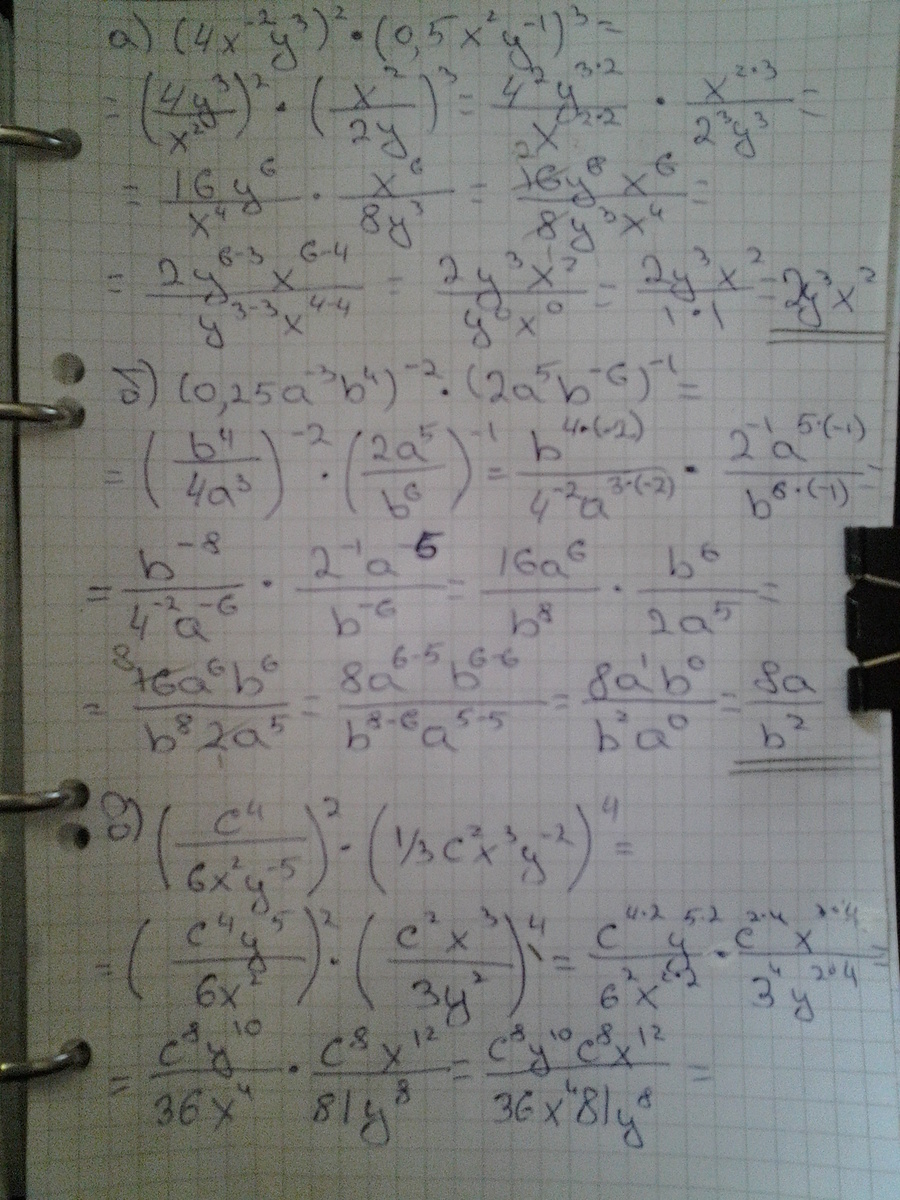 а) (4x⁻²y³)² · (0,5x²y⁻¹)³ =
= (4y³/x²)² · (x²/2y)³ = 4²y³·²/x²·² · x²·³/2³y³ =
= 16y⁶/x⁴ · x⁶/8y³ = 16y⁶x⁶/8y³x⁴ =
= 2y⁶⁻³x⁶⁻⁴/y³⁻³x⁴⁻⁴ = 2y³x²/y⁰x⁰ = 2y³x²/1·1 = 2y³x²
б) (0,25a⁻³b⁴)⁻² · (2a⁵b⁻⁶)⁻¹ =
= (b⁴/4a³)⁻² · (2a⁵/b⁶)⁻¹ = b⁴·⁽⁻²⁾/4⁻²a³·⁽⁻²⁾ · 2⁻¹a⁵·⁽⁻¹⁾/b⁶·⁽⁻¹⁾ =
= b⁻⁸/4⁻²a⁻⁶ · 2⁻¹a⁻⁵/b⁻⁶ = 16a⁶/b⁸ · b⁶/2a⁵ =
= 16a⁶b⁶/b⁸2a⁵ = 8a⁶⁻⁵b⁶⁻⁶/b⁸⁻⁶a⁵⁻⁵ = 8a¹b⁰/b²a⁰ = 8a/b²
в) (c⁴/6x²y⁻⁵)² · (1/3c²x³y⁻²)⁴ =
= (c⁴y⁵/6x²)² · (c²x³/3y²)⁴ = c⁴·²y⁵·²/6²x²·² · c²·⁴x³·⁴/3⁴y²·⁴ =
= c⁸y¹⁰/36x⁴ · c⁸x¹²/81y⁸ = c⁸y¹⁰c⁸x¹²/36x⁴81y⁸ =